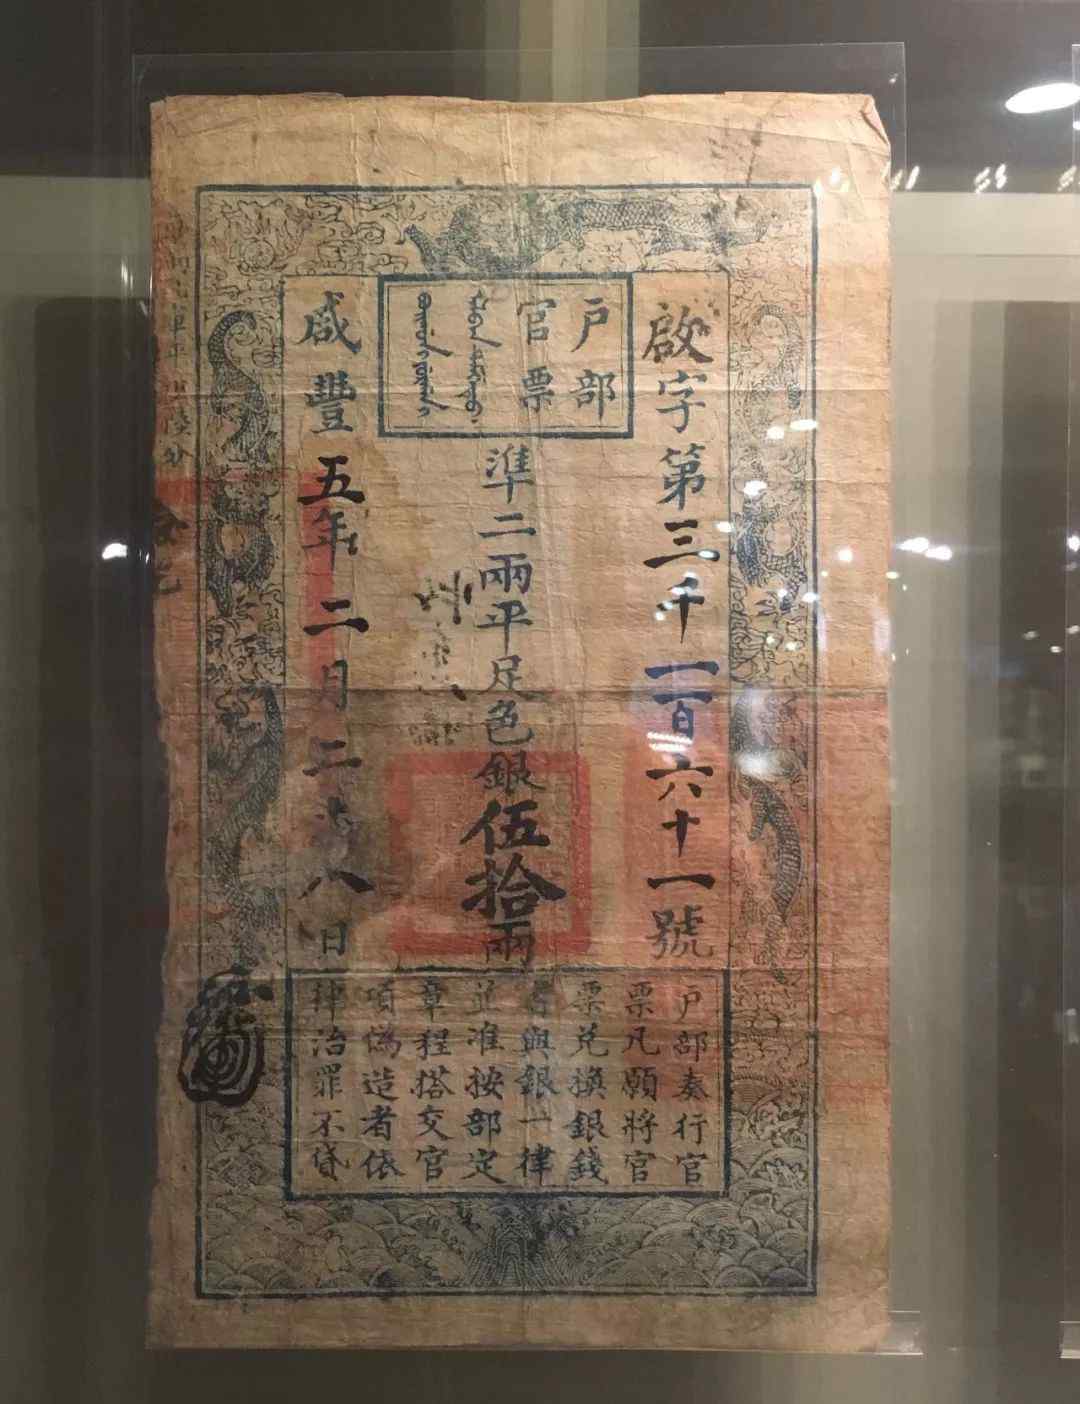 戶部
官票
啟字第三千一百六十一號
準二兩平足色銀伍拾兩
咸豐五年二月二八日
戶部奏行官
票凡願將官
票兌換銀錢
者與銀一律
並准按部定
章程搭交官
項偽造者依
律治罪不貸